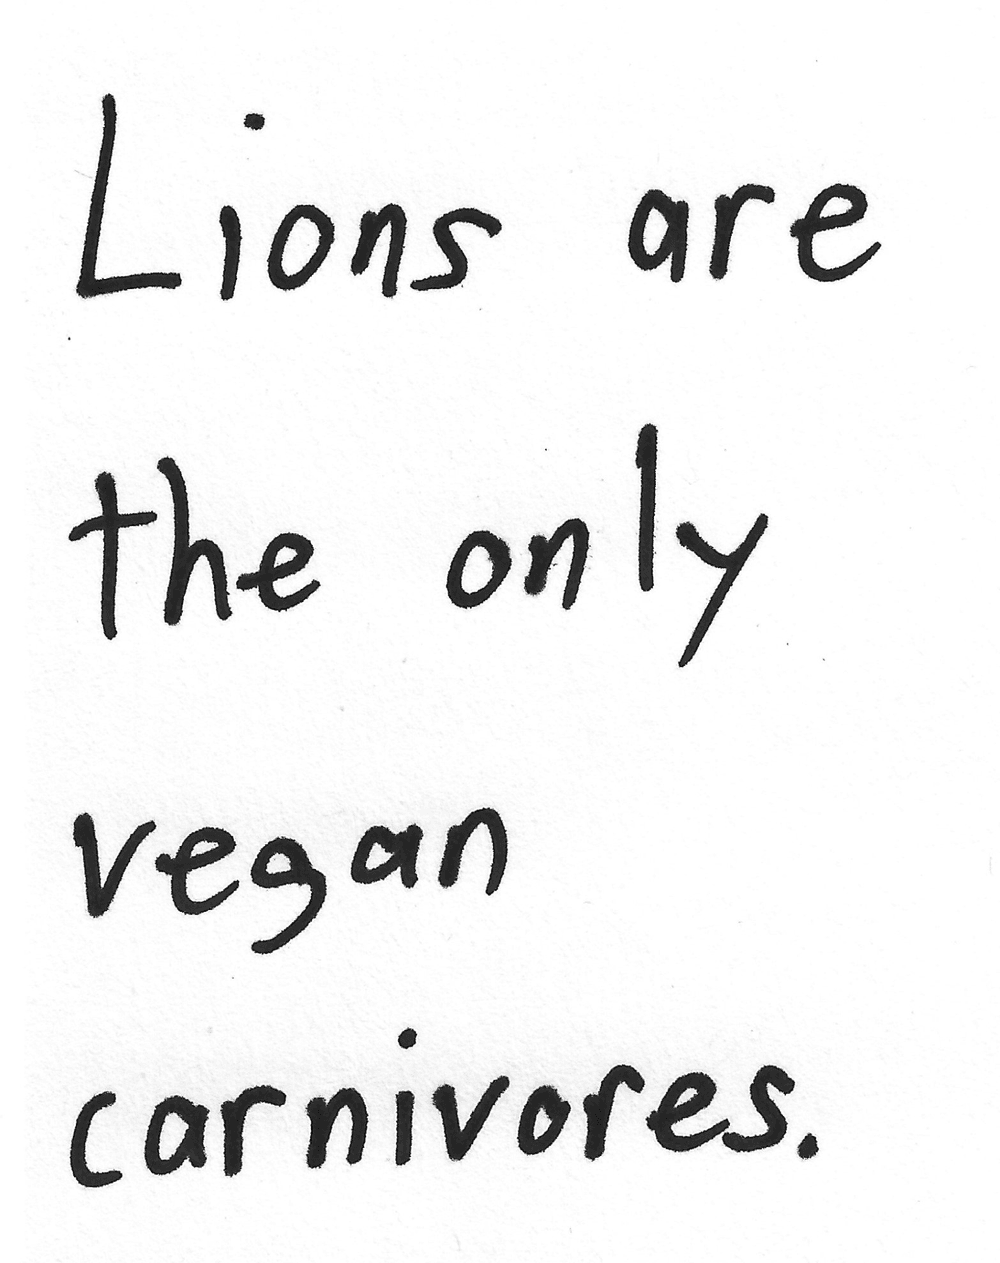 Lions are
the only
vegan
carnivores.